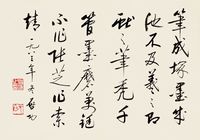 筆成塚墨成
池不及羲之即
獻之筆禿千
管墨磨萬鋌
不作張芝作索
靖 一九八三年冬 啟功